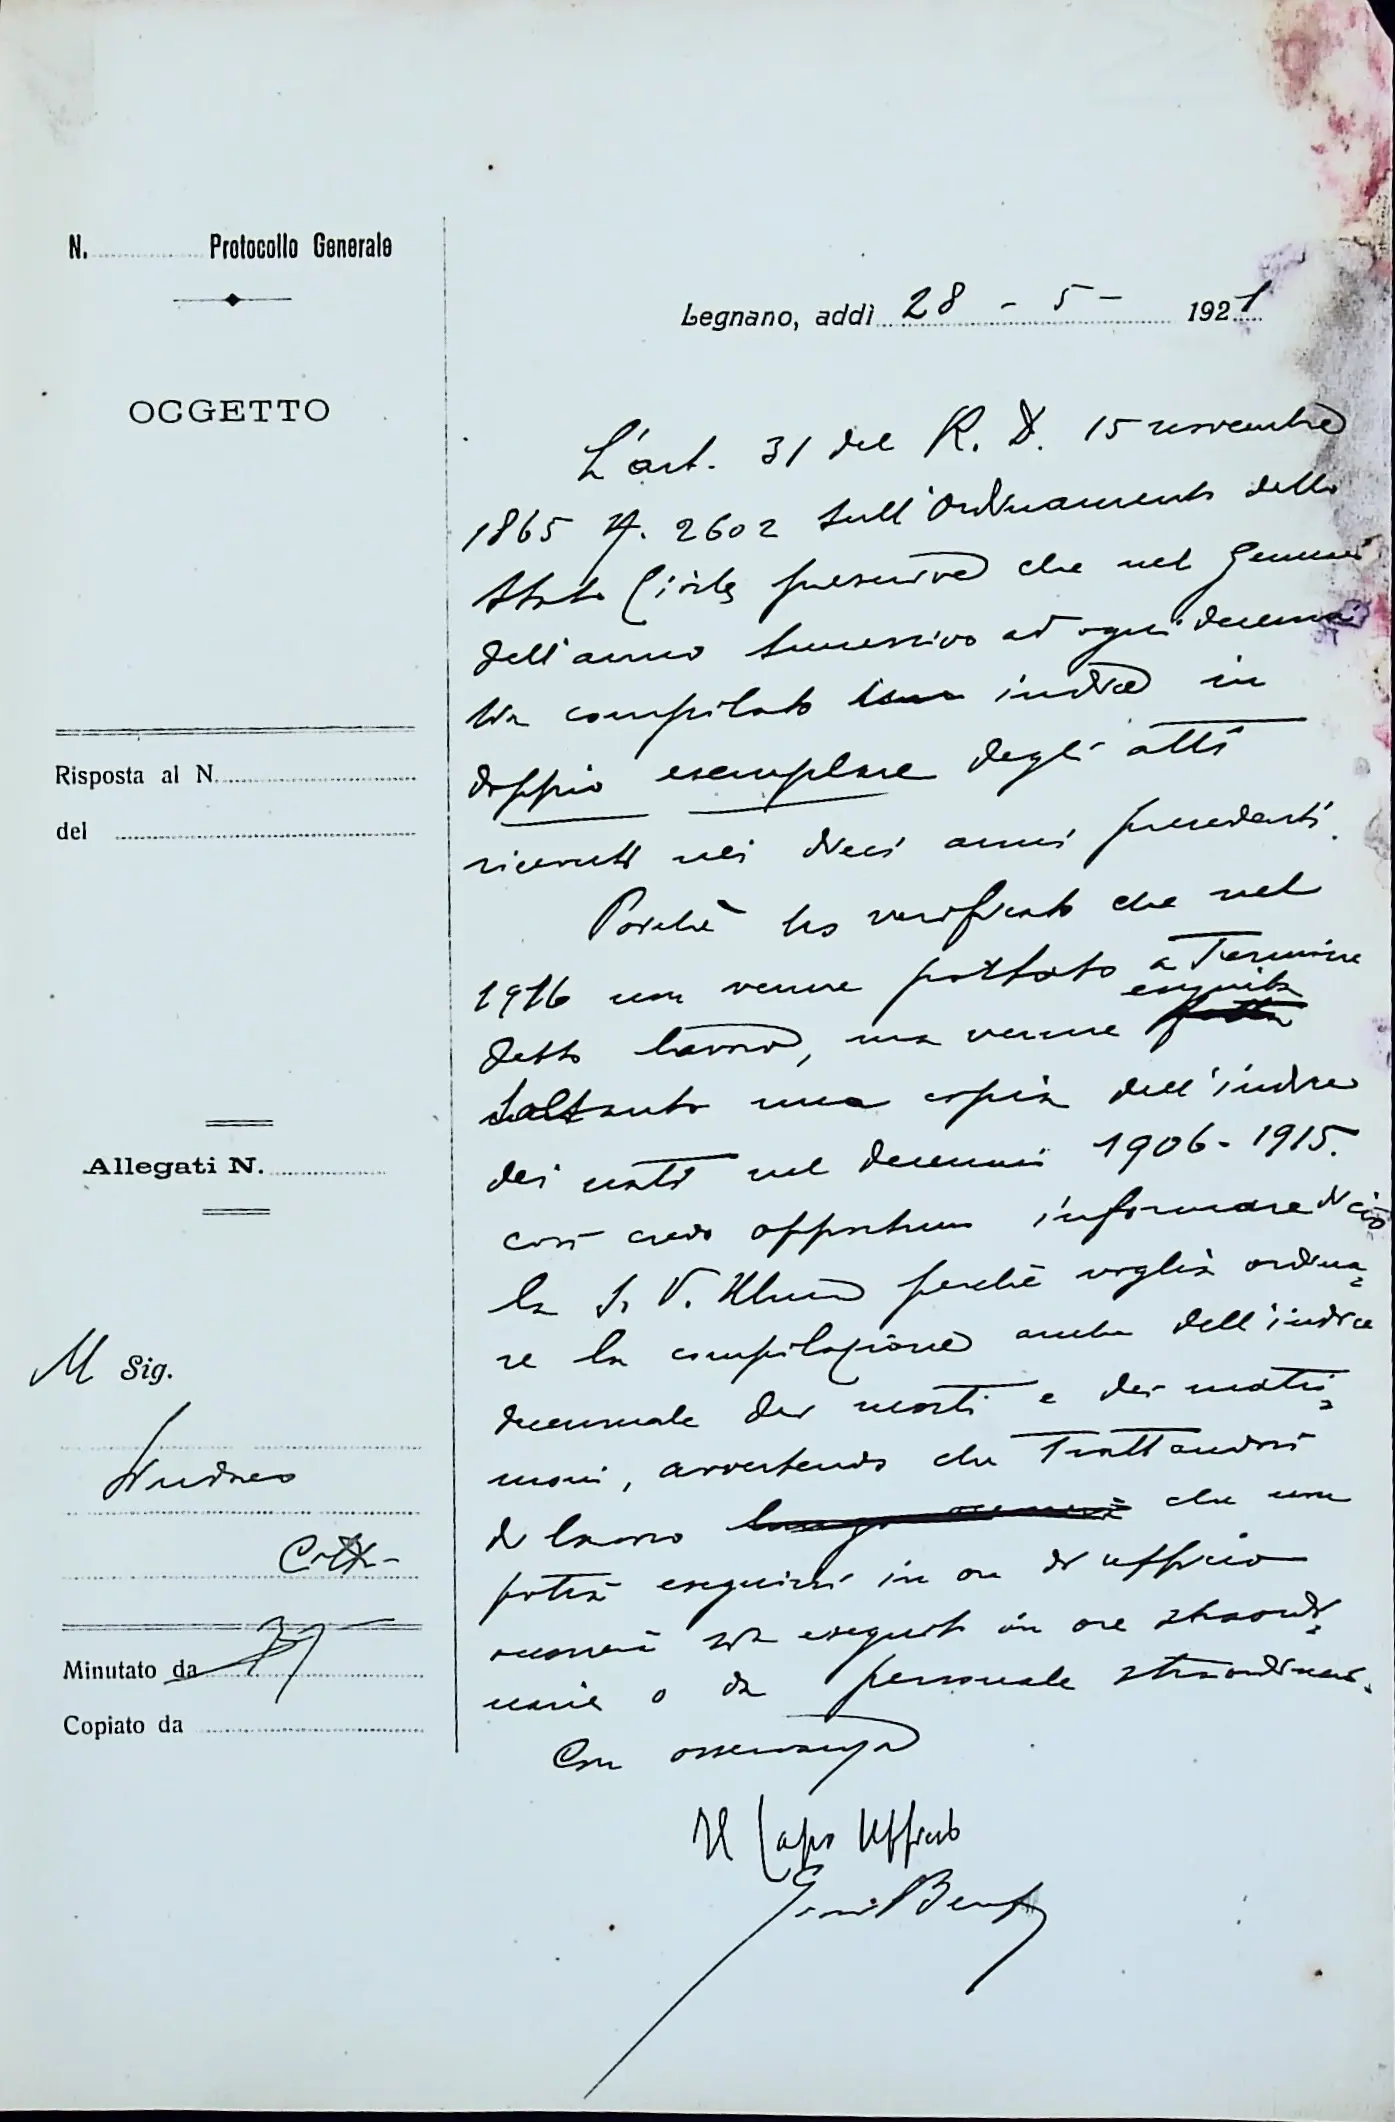 N. Protocollo Generale
OGGETTO
Risposta al N.
del
Allegati N.
Al Sig.
Sindaco
Città
Minutato da
Copiato da
Legnano, addì 28 - 5 - 1921
L'art. 31 del R. D. 15 novembre
1865 N. 2602 sull'Ordinamento dello
Stato Civile prescrive che nel Gennaio
dell'anno successivo ad ogni decennio
sia compilato indice in
doppio esemplare degli atti
ricevuti nei dieci anni precedenti.
Poichè ho verificato che nel
1916 non venne portato a termine
detto lavoro, ma venne eseguita
soltanto una copia dell'indice
dei nati nel decennio 1906-1915.
così credo opportuno informare di ciò
la S. V. Ill.ma perchè voglia ordina=
re la compilazione anche dell'indice
decennale dei morti e dei matri=
moni, avvertendo che trattandosi
di lavoro che non
potrà eseguirsi in ore di ufficio
occorrerà sia eseguito in ore straordi=
narie o da personale straordinario.
Con osservanza
Il Capo Ufficio